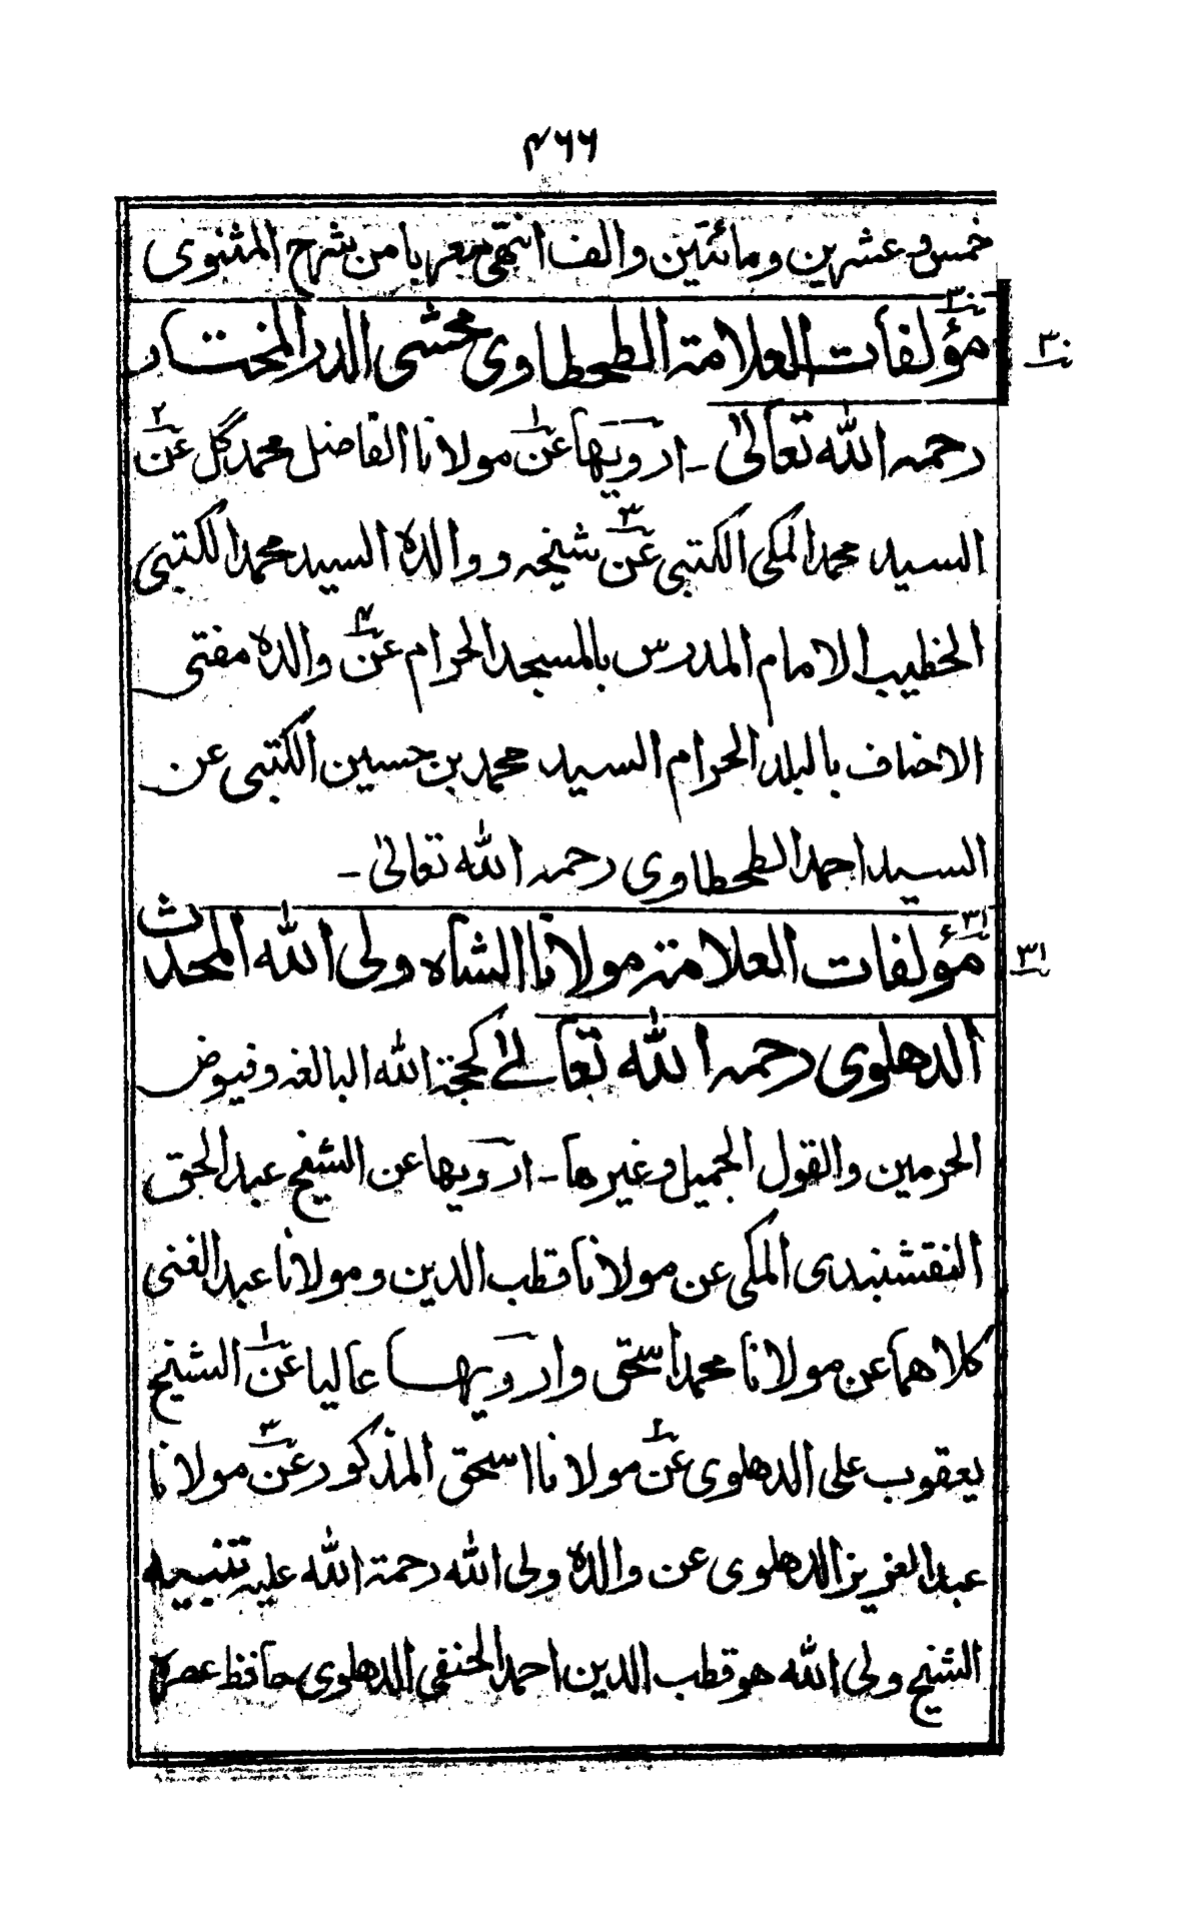 ۴۶۶
خمس وعشرين ومائتين والف انتهى معربا من شرح المثنوى
۳۰
مؤلفات العلامة الطحطاوى محشى الدر المختار
۳۰
رحمه الله تعالىٰ ـ ارويها عن۱ مولانا الفاضل محمد گل عن۲
السيد محمد المكى الكتبى عن۳ شيخه ووالده السيد محمد الكتبى
الخطيب الامام المدرس بالمسجد الحرام عن۴ والده مفتى
الاحناف بالبلد الحرام السيد محمد بن حسين الكتبى عن
السيد احمد الطحطاوى رحمه الله تعالىٰ ـ
۳۱
مؤلفات العلامة مولانا الشاه ولى الله المحدث
۳۱
الدهلوى رحمه الله تعالےٰ كحجة الله البالغه وفيوض
الحرمين والقول الجميل وغيرها ـ ارويها عن الشيخ عبد الحق
النقشبندى المكى عن مولانا قطب الدين ومولانا عبد الغنى
كلاهما عن مولانا محمد اسحٰق وارويها عاليا عن۱ الشيخ
يعقوب على الدهلوى عن۲ مولانا اسحق المذكور عن۳ مولانا
عبد العزيز الدهلوى عن والده ولى الله رحمة الله عليه تنبيه
الشيخ ولى الله هو قطب الدين احمد الحنفى الدهلوى حافظ عصره